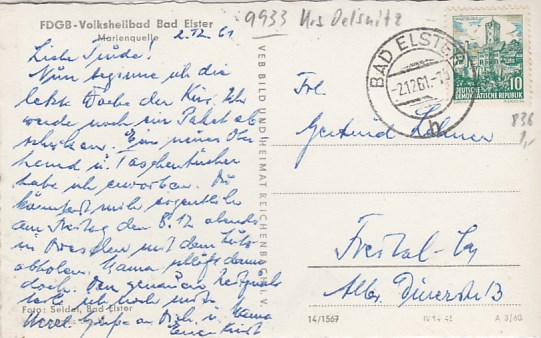 FDGB-Volksheilbad Bad Elster
Marienquelle
2.12.61
Liebe Trude!
Nun beginne ich die
letzte Woche der Kur. Ich
werde noch ein Paket ab
schicken. Ein neues Ober
hemd u. Taschentücher
habe ich erworben. Du
könntest mich eigentlich
am Freitag den 8.12 abends
in Dresden mit dem
abholen. Mama
doch. Den genauen
ich noch mit.
Herzl. Grüße an Dich u. Mama
Euer
Foto: Seidel, Bad Elster
VEB BILD UND HEIMAT REICHENBACH I. V.
9933 Oelsnitz
BAD ELSTER
-2.12.61.-
DEUTSCHE
DEMOKRATISCHE REPUBLIK
10
Frl.
Gertrud
Freital-
Albr. Dürerstr 13
836
1,-
14/1567
A 3/60